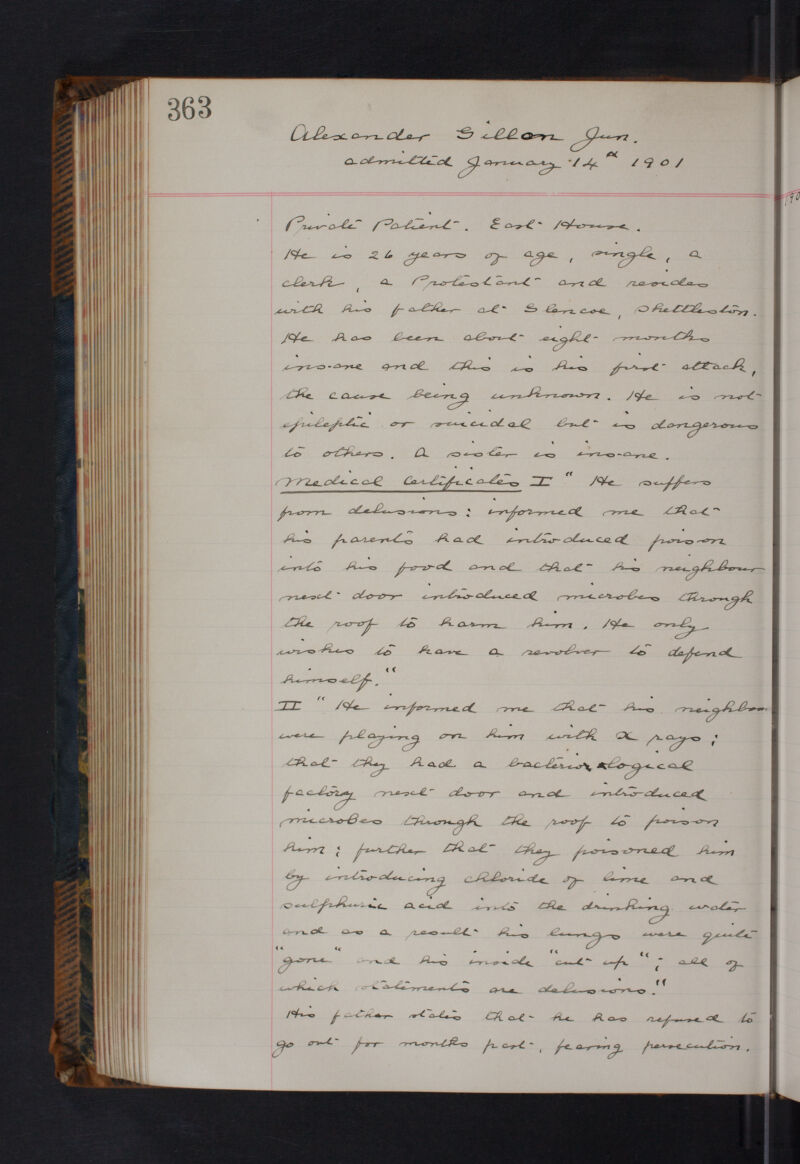 363
Alexander Gillon Jun.
admitted January 14th 1901
190
Private Patient. East House.
He is 26 years of age, single, a
clerk, a Protestant and resides
with his father at Glencoe, Shettleston.
He has been about eight months
insane and this is his first attack,
the cause being unknown. He is not
epileptic or suicidal but is dangerous
to others. A sister is insane.
Medical Certificates I "He suffers
from delusions: informed me that
his parents had introduced poison
into his food and that his neighbour
next door introduced microbes through
the roof to harm him. He only
wishes to have a revolver to defend
himself."
II "He informed me that his neighbou
were playing on him with X rays;
that they had a bacteriological
factory next door and introduced
microbes through the roof to poison
him; further that they poisoned him
by introducing chloride of lime and
sulphuric acid into the drinking water
and as a result his lungs were quite
"gone" and his inside "cut up"; all of
which statements are delusions."
His father states that he has refused to
go out for months past, fearing persecution.